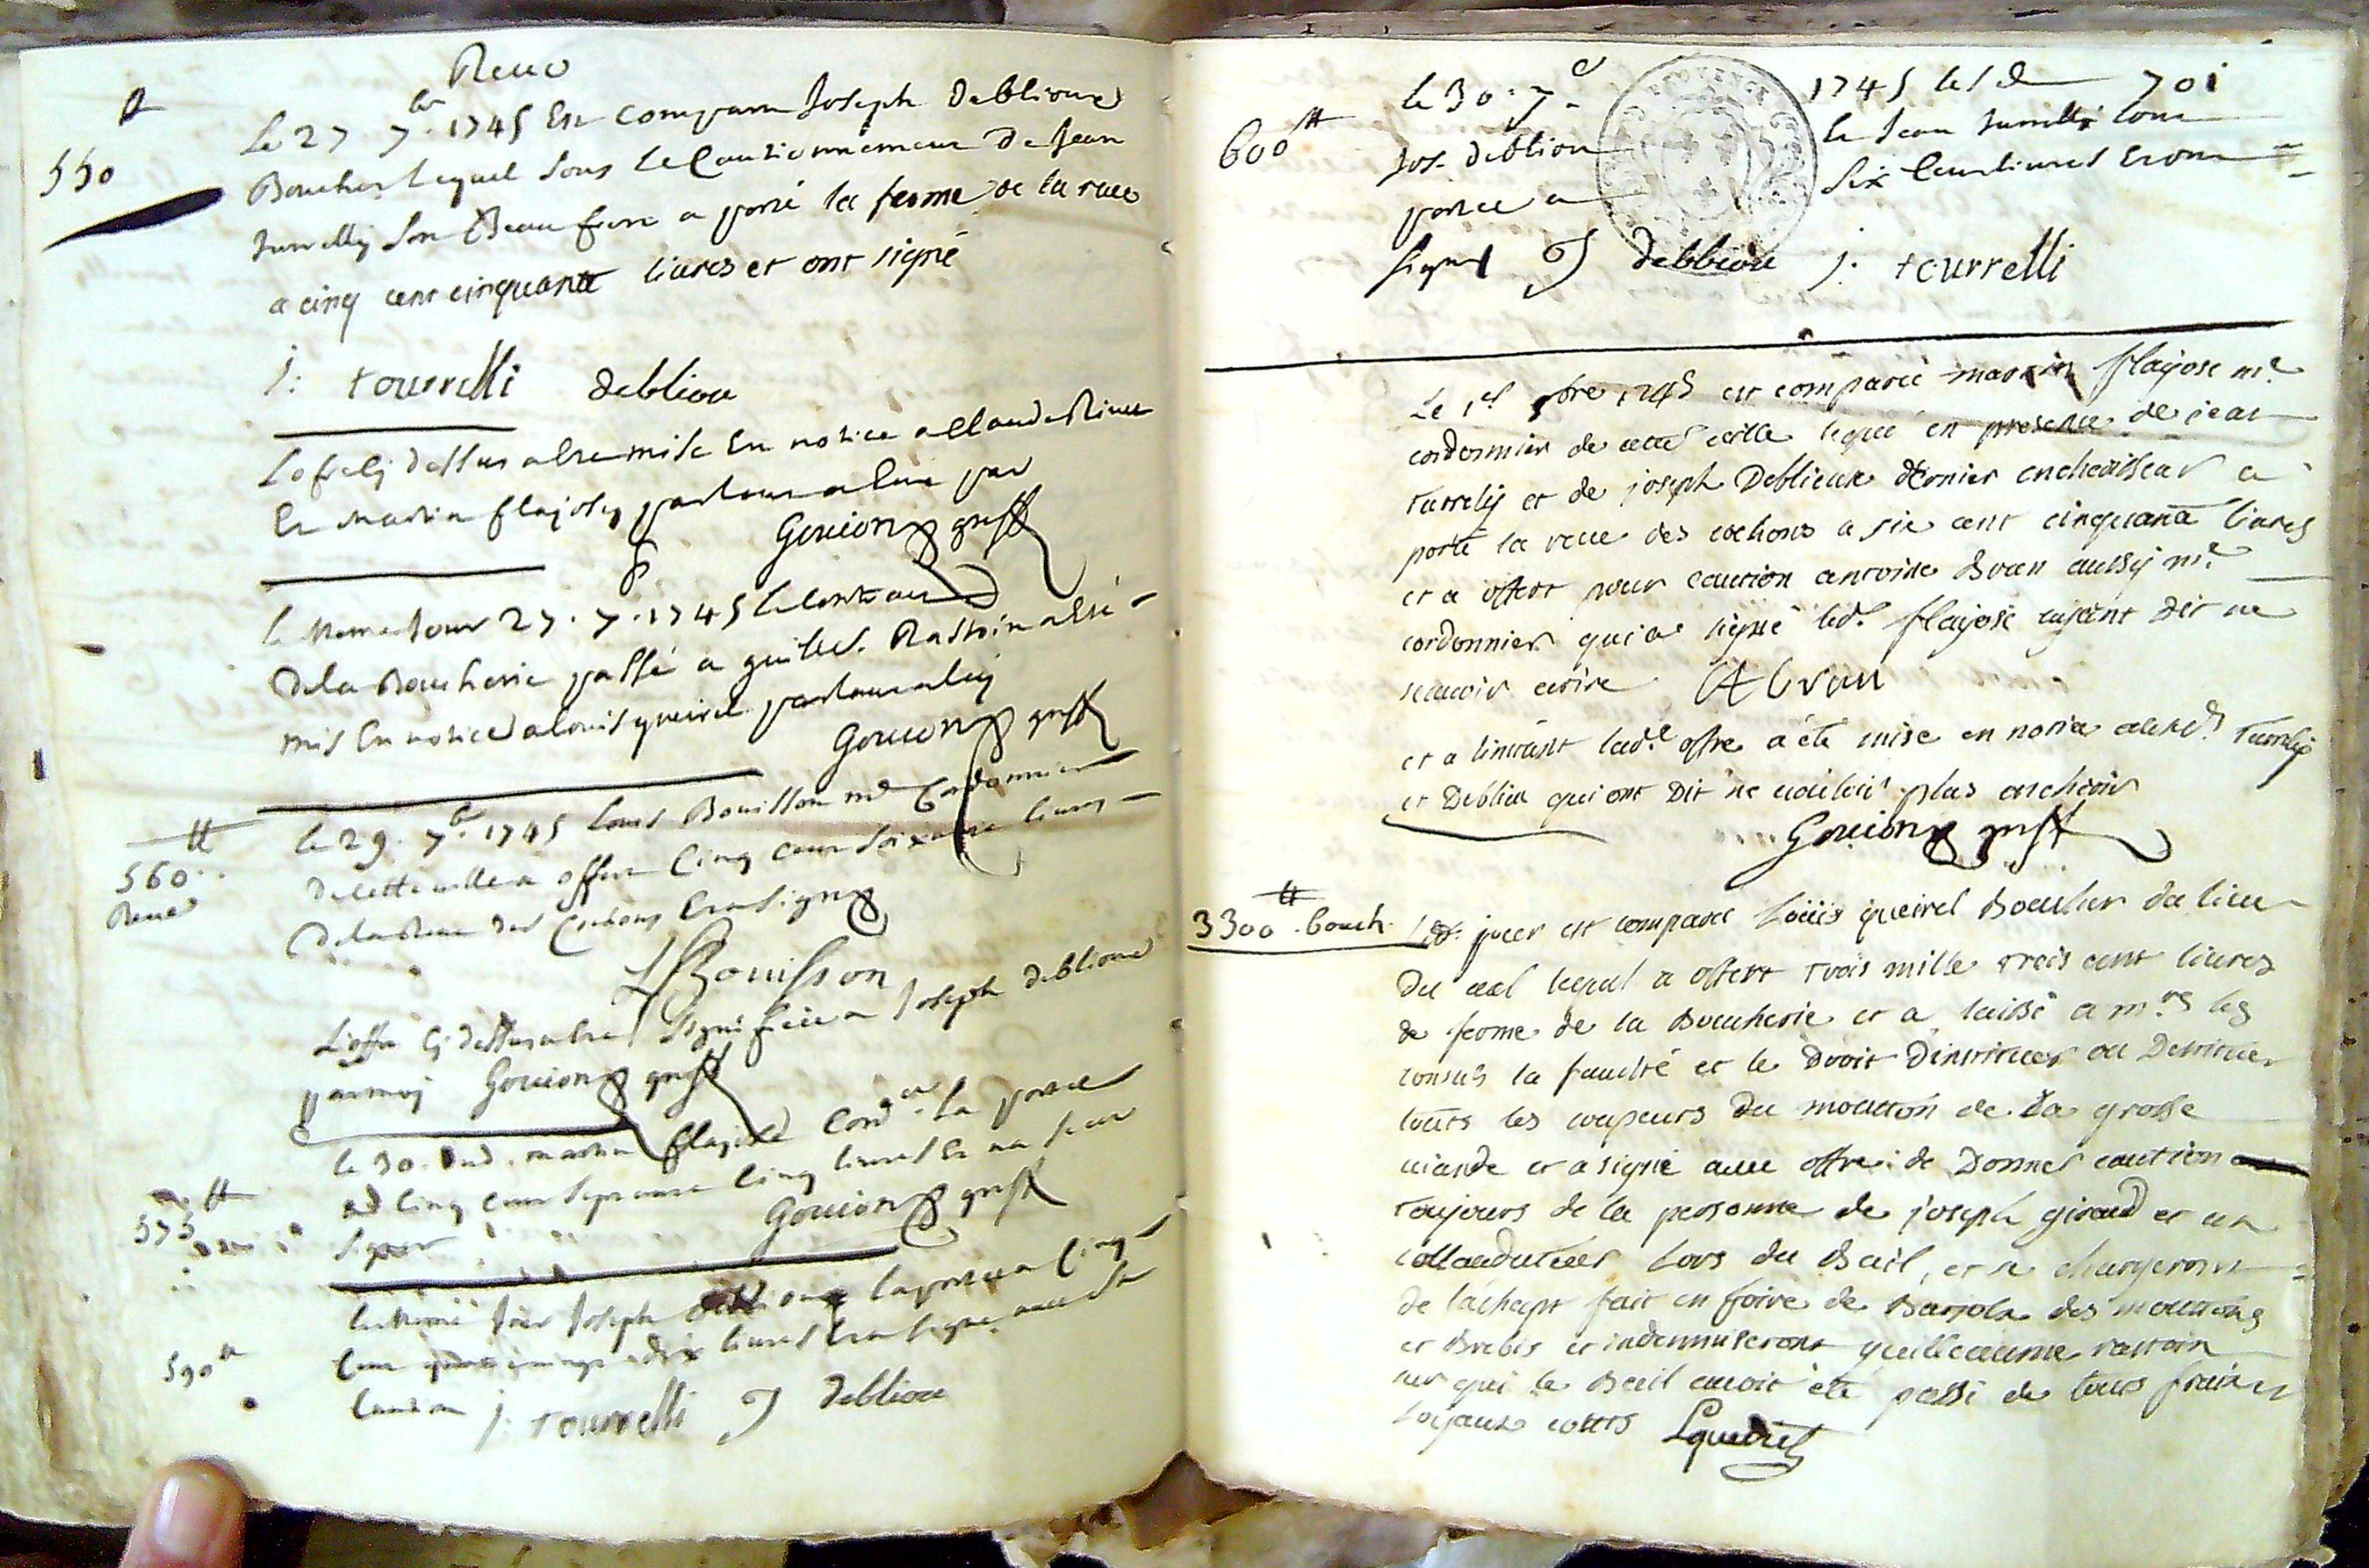 Reue
Le 27 7bre 1745 Est Comparu Joseph Deblioux
550
Boucher Lequel Sous Le Cautionnemene De Jean
turrelly Son Beau frere a porté la ferme de la reue
a cinq cent cinquante liures et ont signé
j: tourrelli debliou
Lofre cy dessus a ete mise En notice
Et Martin flajose, par
Gouion greff
le Meme Jour 27. 7. 1745
Dela Boucherie passé a guille. Rastoin a esté
mis En notice a louis queirel
Gouion greff
le 29. 7bre 1745 Louis Bouisson md Cordonnier
560
Reue
De cette ville a offert Cinq Cens Soixante liures
Dela Reue des Cochons Et a Signé
LBouisson
L'offre cy dessus a ete Signifiée a Joseph deblioux
par moy Gouion greff
le 30. dud. martin flajose Cordr. la portée
575
ad Cinq Cens Septante Cinq liures Et na Sceu
Signer Gouion greff
le Meme Jour Joseph deblioux la portée a Cinq
590
Cens dix liures Et a Signé auec Sa
Caution j: tourrelli J debliou
le 30. 7. 1745 701
600
Jos. debliou Jean turrelli
portée a Six Cens liures Et ont
Signé J debbiou j. tourrelli
Le 1er 8bre 1745 est comparu martin flayose me
cordonnier de cette ville lequel en presence de jean
turrelly et de joseph Deblieux dernier encherisseur a
porté la reue des cochons a six cent cinquante liures
et a offert pour caution antoine Bran aussy me
cordonnier qui a signé led. flayose ayant dit ne
scauoir ecrire A bran
et a linstant lade offre a été mise en notice auxd. Turrelly
et Deblieu qui ont Dit ne vouloir plus encherir
Gouion greff
3300 bouch. Led. jour est comparu Loüis queirel Boucher du lieu
Du lequel a offert trois mille trois cent liures
de ferme de la Boucherie et a laissé a mrs les
consuls la faculté et le Droit Dinstituer ou Destituer
touts les coupeurs Du mouton de la grosse
uiande et a signé auec offre de Donner caution
toujours de la personne de joseph giraud et un
collauduteur Lors du Bail, et se chargeront
de l'achept fait en foire de Barjols des moutons
et Brebis et indemniseront guilleaume rastoin
sur qui le Bail auoit été passé de tous frais et
loyaux coûts Lqueirel